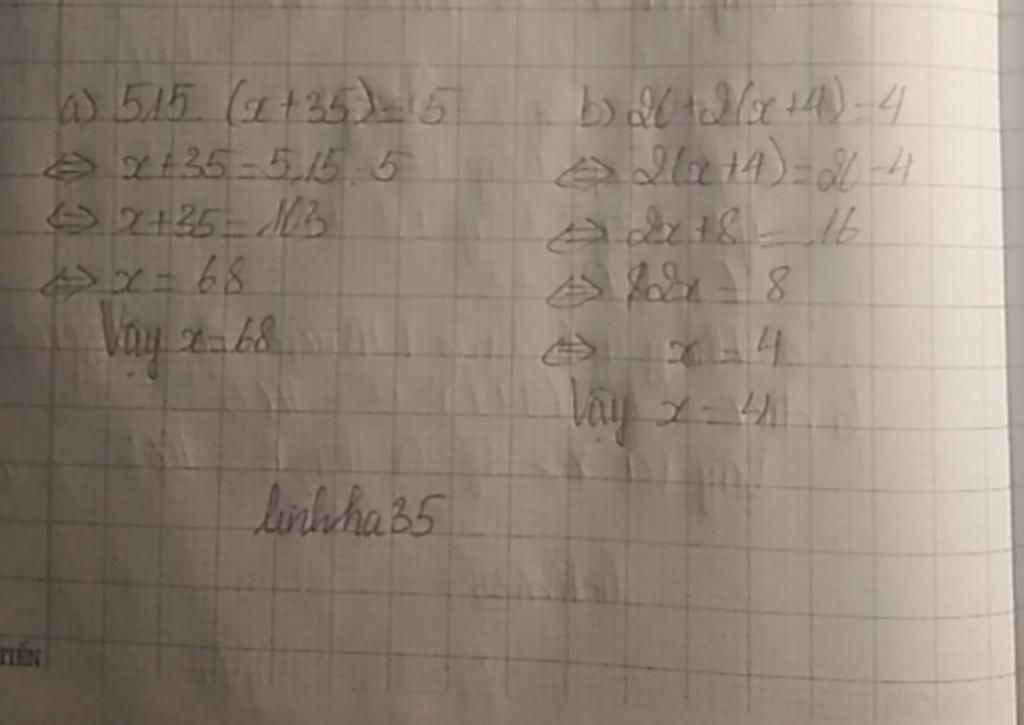 a) 515 (x+35) = 5
⇔ x+35 = 5,15 : 5
⇔ x+35 = 103
⇔ x = 68
Vậy x=68
b) 20+2(x+4) = 4
⇔ 2(x+4) = 20-4
⇔ 2x+8 = 16
⇔ 2x = 8
⇔ x = 4
Vậy x = 4
linhha35
TIẾN